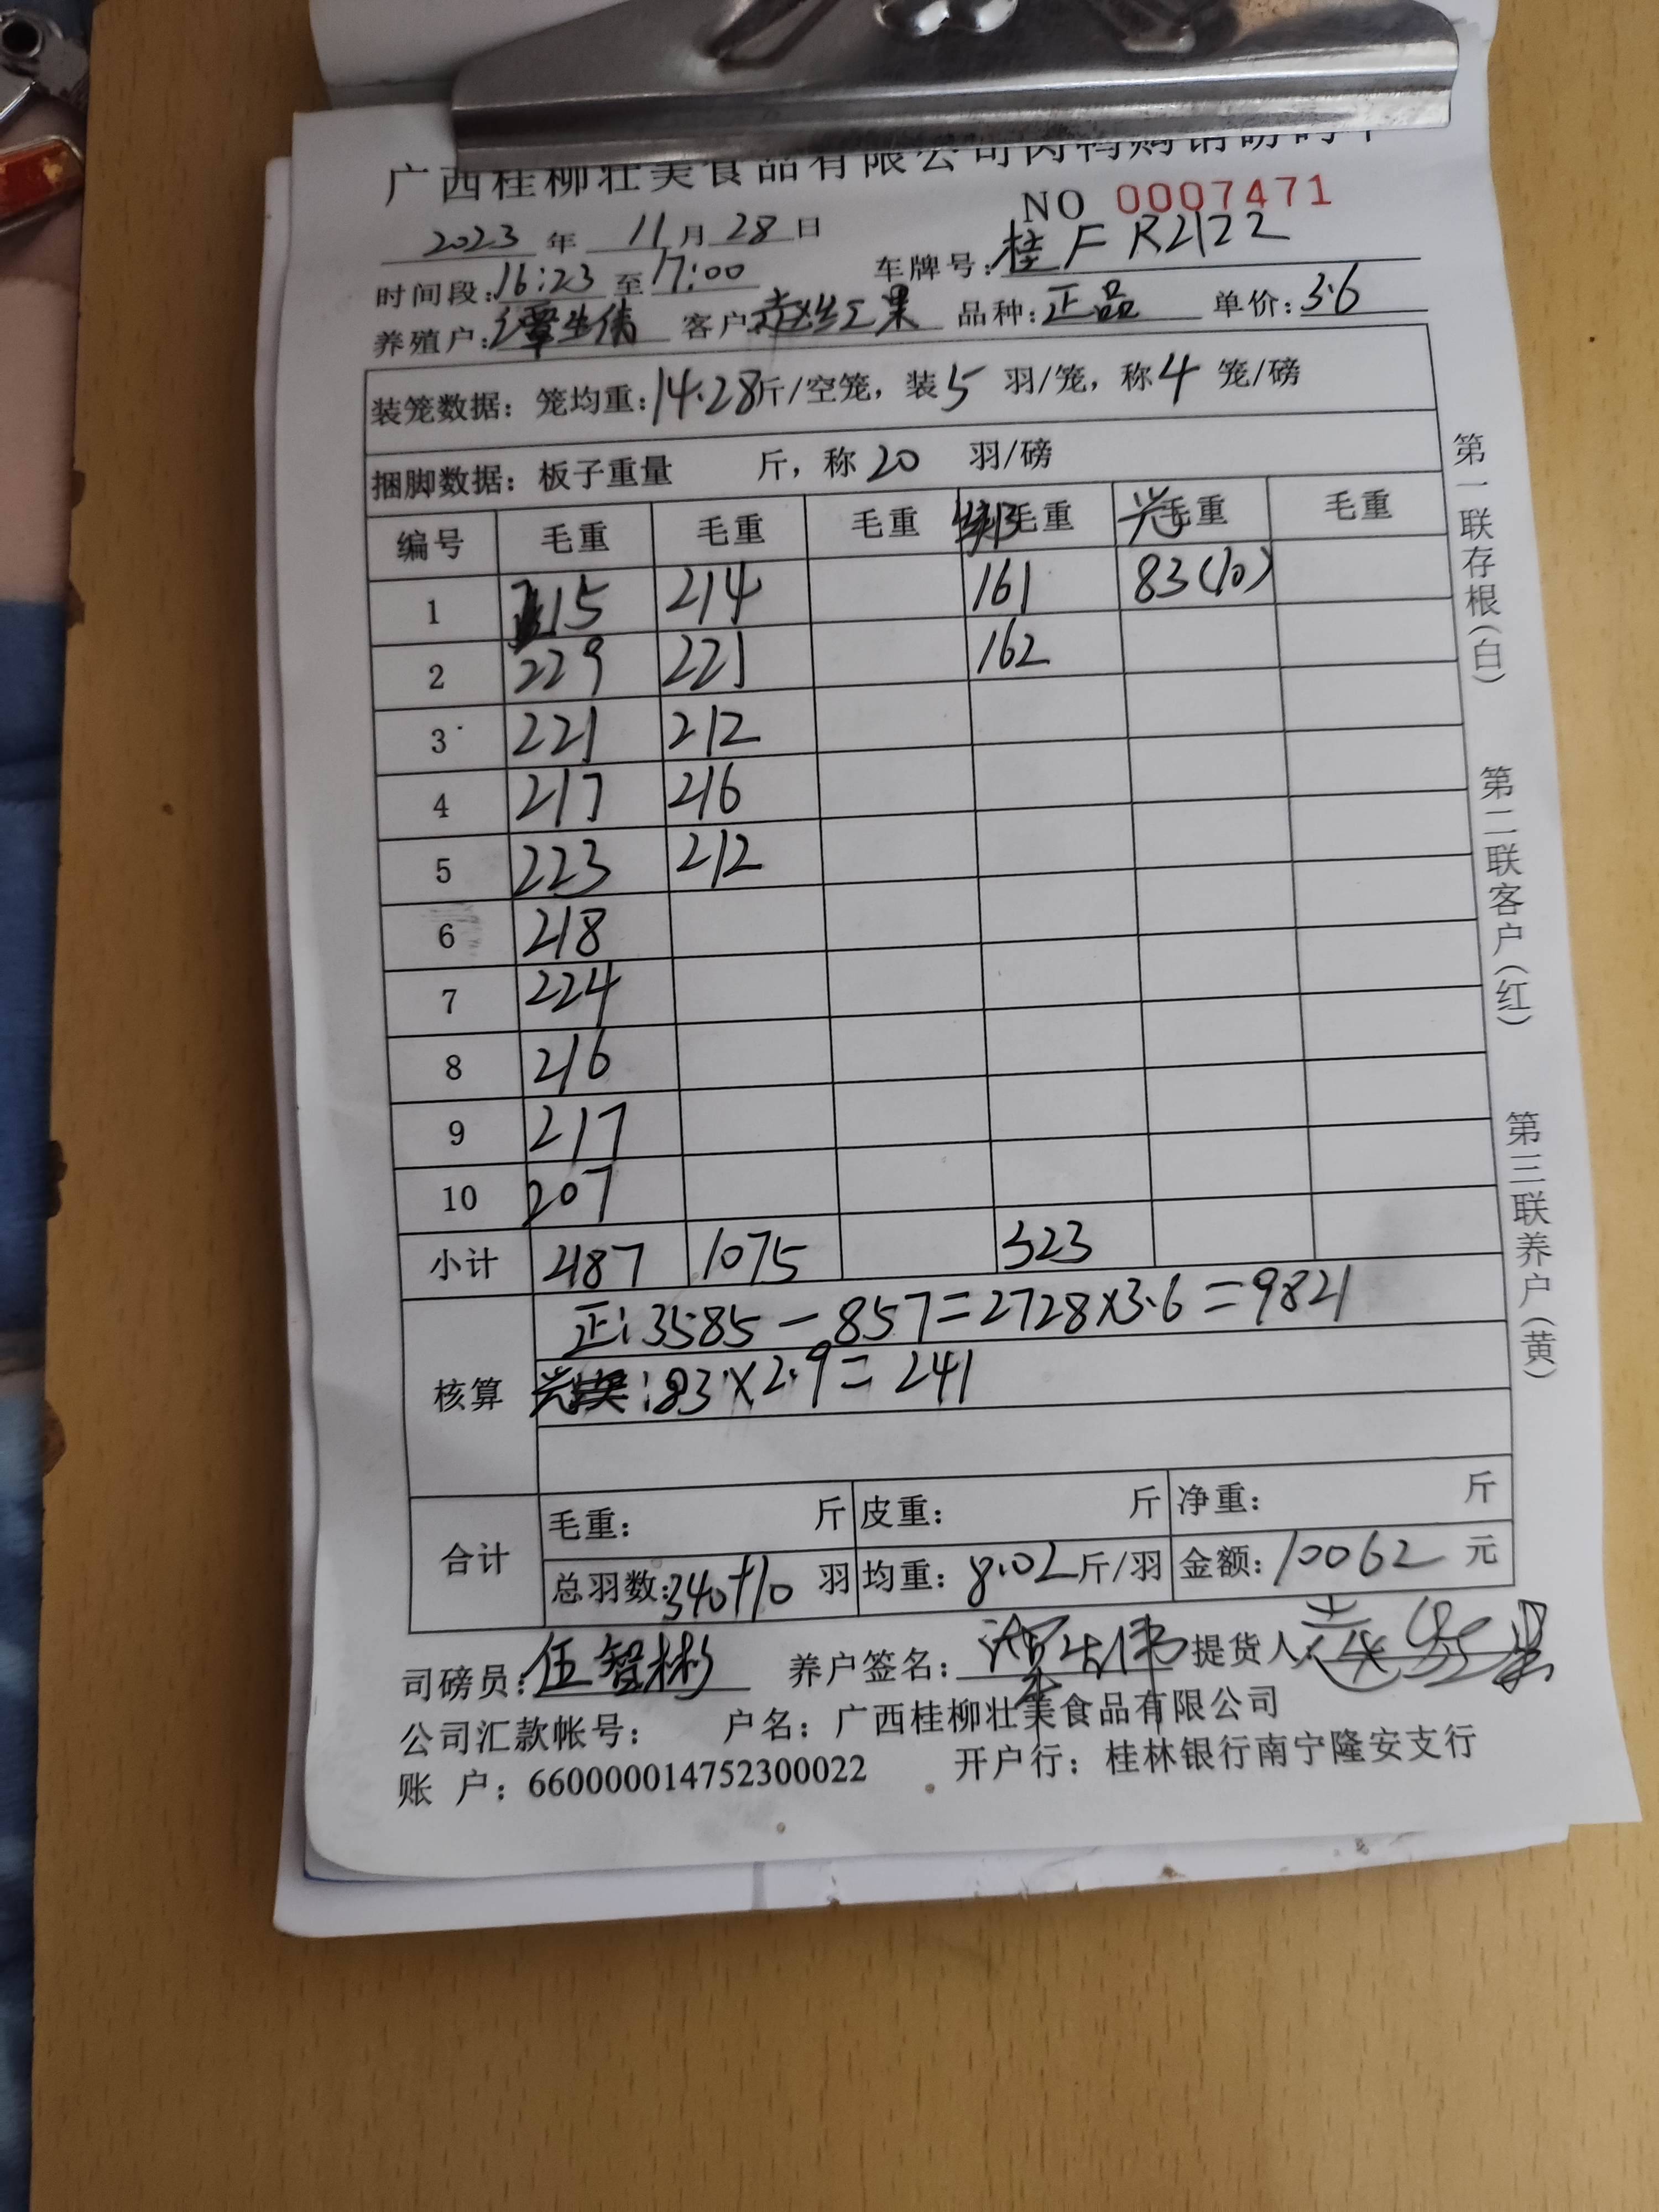 广西桂柳壮美食品有限公司肉鸭购销磅码单
NO 0007471
2023 年 11 月 28 日
时间段:16:23 至 17:00 车牌号:桂F R2122
养殖户: 客户: 品种:正品 单价:3.6
装笼数据:笼均重:14.28斤/空笼,装5 羽/笼,称4 笼/磅
捆脚数据:板子重量 斤,称20 羽/磅
编号 毛重 毛重 毛重 绑毛重 毛重 毛重
1 215 214 161 83(10)
2 229 221 162
3 221 212
4 217 216
5 223 212
6 218
7 224
8 216
9 217
10 207
小计 2187 1075 323
核算
正:3585-857=2728×3.6=9821
:83×2.9=241
合计
毛重: 斤 皮重: 斤 净重: 斤
总羽数:340+10 羽 均重:8.02斤/羽 金额:10062 元
司磅员:伍智彬 养户签名: 提货人:
公司汇款帐号: 户名:广西桂柳壮美食品有限公司
账 户:660000014752300022 开户行:桂林银行南宁隆安支行
第一联存根(白) 第二联客户(红) 第三联养户(黄)